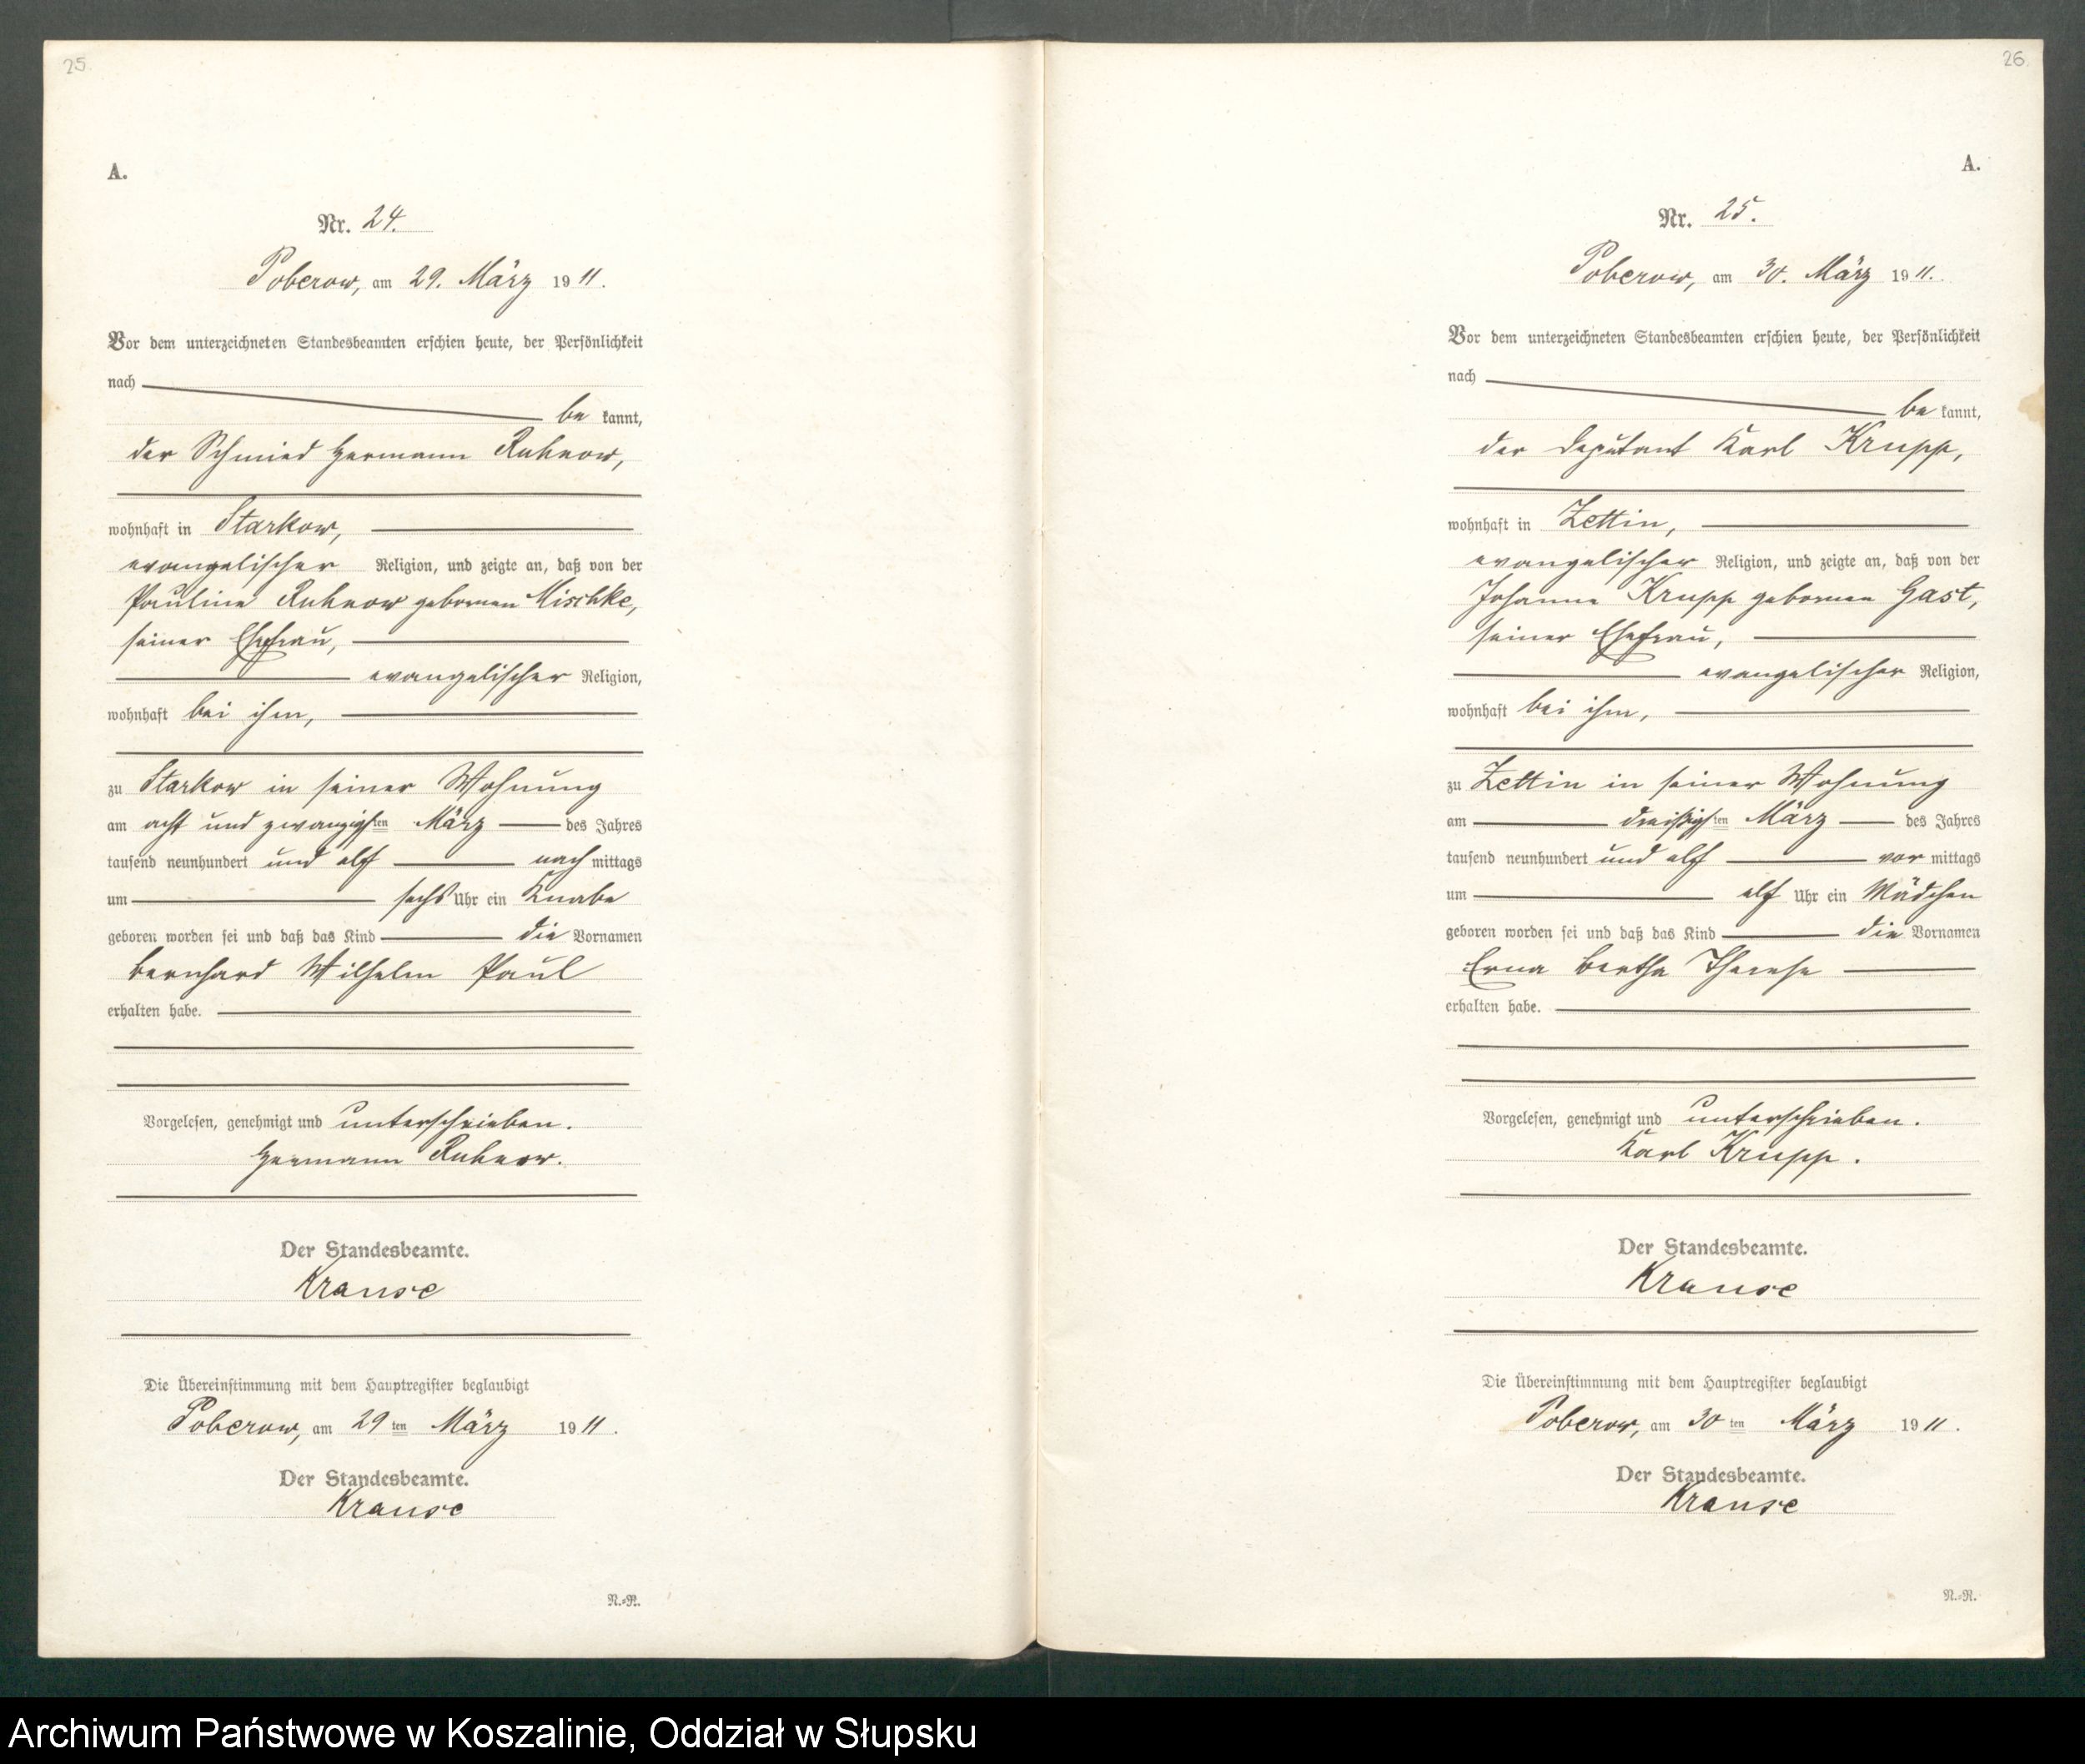 25
A.
Nr. 24.
Poberow, am 29. März 1911.
Vor dem unterzeichneten Standesbeamten erschien heute, der Persönlichkeit
nach
be kannt,
der Schmied Hermann Ruhnow,
wohnhaft in Starkow,
evangelischer Religion, und zeigte an, daß von der
Pauline Ruhnow geborenen Mischke,
seiner Ehefrau,
evangelischer Religion,
wohnhaft bei ihm,
zu Starkow in seiner Wohnung
am acht und zwanzigsten März des Jahres
tausend neunhundert und elf nach mittags
um sechs Uhr ein Knabe
geboren worden sei und daß das Kind die Vornamen
Bernhard Wilhelm Paul
erhalten habe.
Vorgelesen, genehmigt und unterschrieben.
Hermann Ruhnow.
Der Standesbeamte.
Krause
Die Übereinstimmung mit dem Hauptregister beglaubigt
Poberow, am 29 ten März 1911.
Der Standesbeamte.
Krause
N.-R.
26
A.
Nr. 25.
Poberow, am 30. März 1911.
Vor dem unterzeichneten Standesbeamten erschien heute, der Persönlichkeit
nach
be kannt,
der Deputant Karl Krupp,
wohnhaft in Zettin,
evangelischer Religion, und zeigte an, daß von der
Johanne Krupp geborenen Gast,
seiner Ehefrau,
evangelischer Religion,
wohnhaft bei ihm,
zu Zettin in seiner Wohnung
am dreißigsten März des Jahres
tausend neunhundert und elf vor mittags
um elf Uhr ein Mädchen
geboren worden sei und daß das Kind die Vornamen
Erna Bertha Therese
erhalten habe.
Vorgelesen, genehmigt und unterschrieben.
Karl Krupp.
Der Standesbeamte.
Krause
Die Übereinstimmung mit dem Hauptregister beglaubigt
Poberow, am 30 ten März 1911.
Der Standesbeamte.
Krause
N.-R.
Archiwum Państwowe w Koszalinie, Oddział w Słupsku